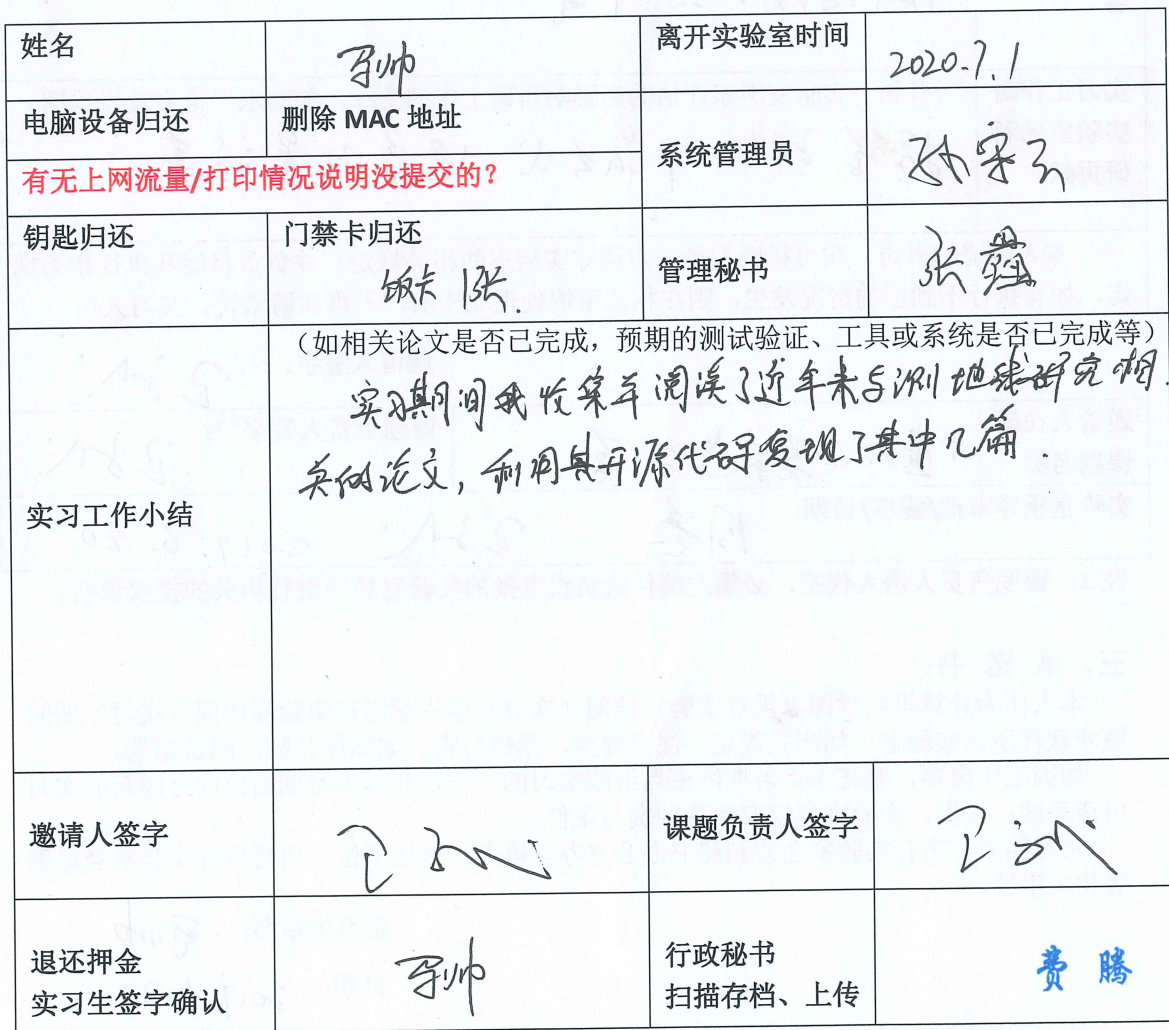 姓名 离开实验室时间 2020.7.1
电脑设备归还 删除 MAC 地址
系统管理员
有无上网流量/打印情况说明没提交的?
钥匙归还 门禁卡归还
饭卡1张. 管理秘书
(如相关论文是否已完成,预期的测试验证、工具或系统是否已完成等)
实习期间我收集并阅读了近年来与测地线研究相
关的论文, 利用其开源代码复现了其中几篇.
实习工作小结
邀请人签字 课题负责人签字
退还押金 行政秘书 费腾
实习生签字确认 扫描存档、上传